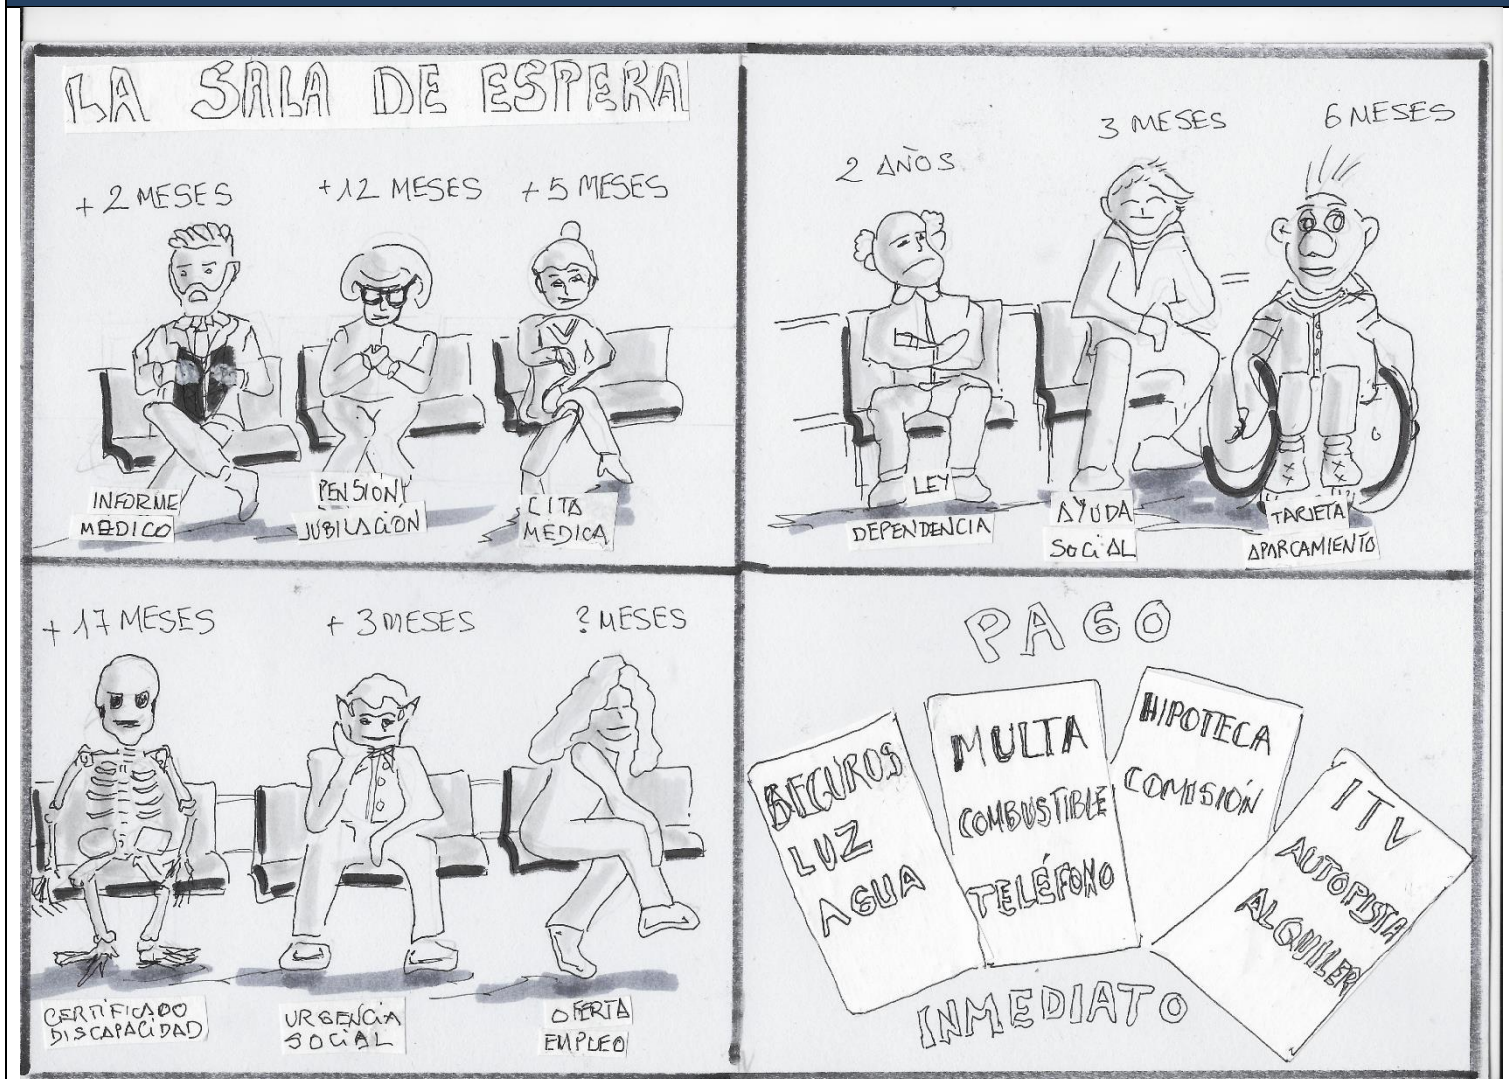 LA SALA DE ESPERA
+ 2 MESES
+ 12 MESES
+ 5 MESES
INFORME
MEDICO
PENSION Y
JUBILACION
CITA
MEDICA
2 AÑOS
3 MESES
6 MESES
LEY
DEPENDENCIA
AYUDA
SOCIAL
TARJETA
APARCAMIENTO
+ 17 MESES
+ 3 MESES
? MESES
CERTIFICADO
DISCAPACIDAD
URGENCIA
SOCIAL
OFERTA
EMPLEO
PAGO
SEGUROS
LUZ
AGUA
MULTA
COMBUSTIBLE
TELÉFONO
HIPOTECA
COMISIÓN
ITV
AUTOPISTA
ALQUILER
INMEDIATO